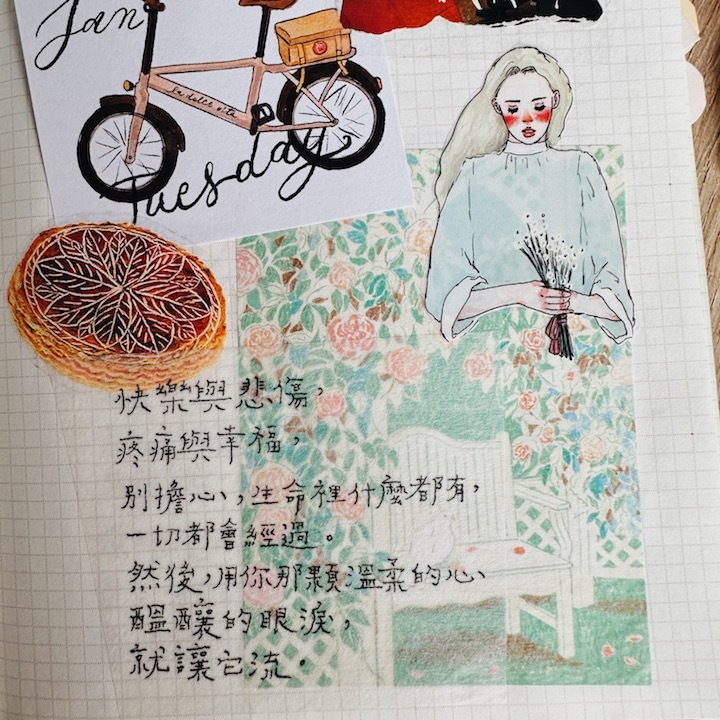 Jan
La dolce vita
Tuesday
快樂與悲傷，
疼痛與幸福，
別擔心，生命裡什麼都有，
一切都會經過。
然後，用你那顆溫柔的心、
醞釀的眼淚，
就讓它流。